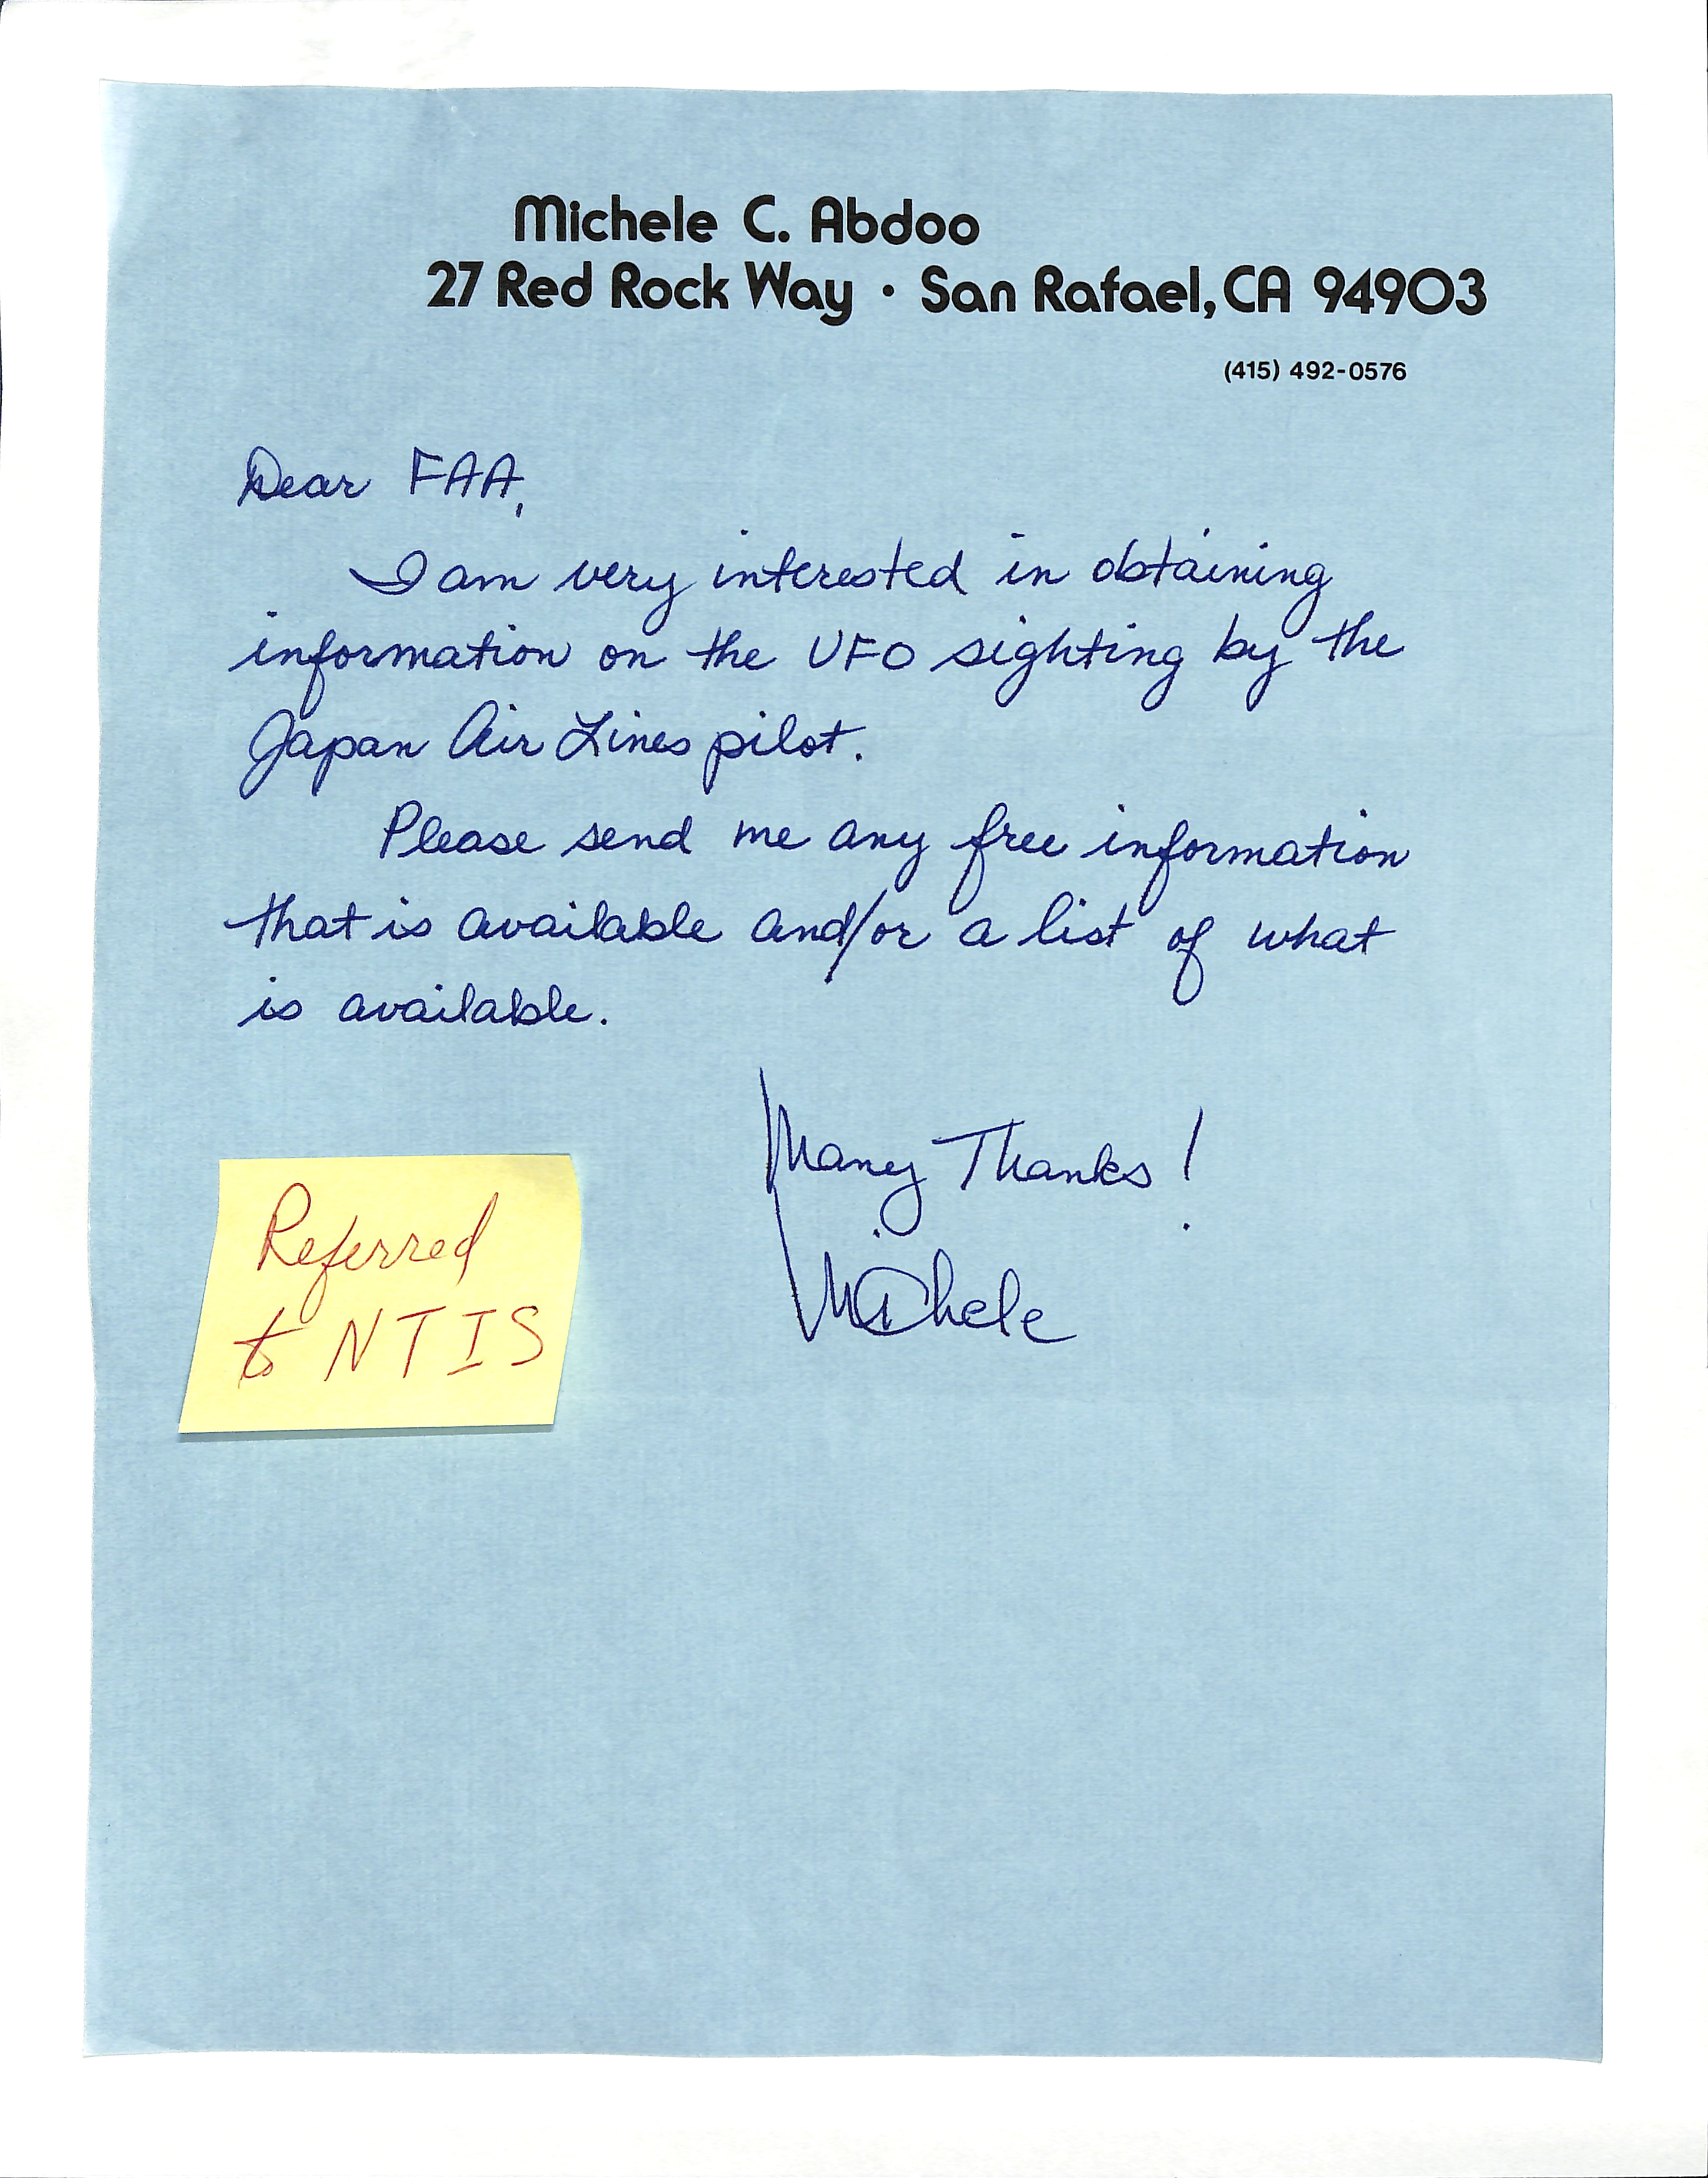 Michele C. Abdoo
27 Red Rock Way · San Rafael, CA 94903
(415) 492-0576
Dear FAA,
I am very interested in obtaining
information on the UFO sighting by the
Japan Air Lines pilot.
Please send me any free information
that is available and/or a list of what
is available.
Many Thanks!
Michele
Referred
to NTIS